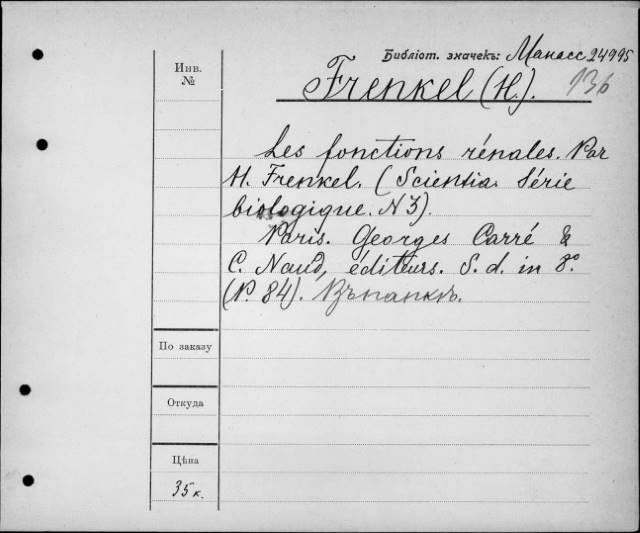 Библіот. значекъ: Манасс 24995
136
Frenkel (H.).
Инв.
№
Les fonctions rénales. Par
H. Frenkel. (Scientia. Série
biologique. N 3).
Paris. Georges Carré &
C. Naud, éditeurs. S. d. in 8°.
(P. 84). Въ папкѣ.
По заказу
Откуда
Цѣна
35 к.